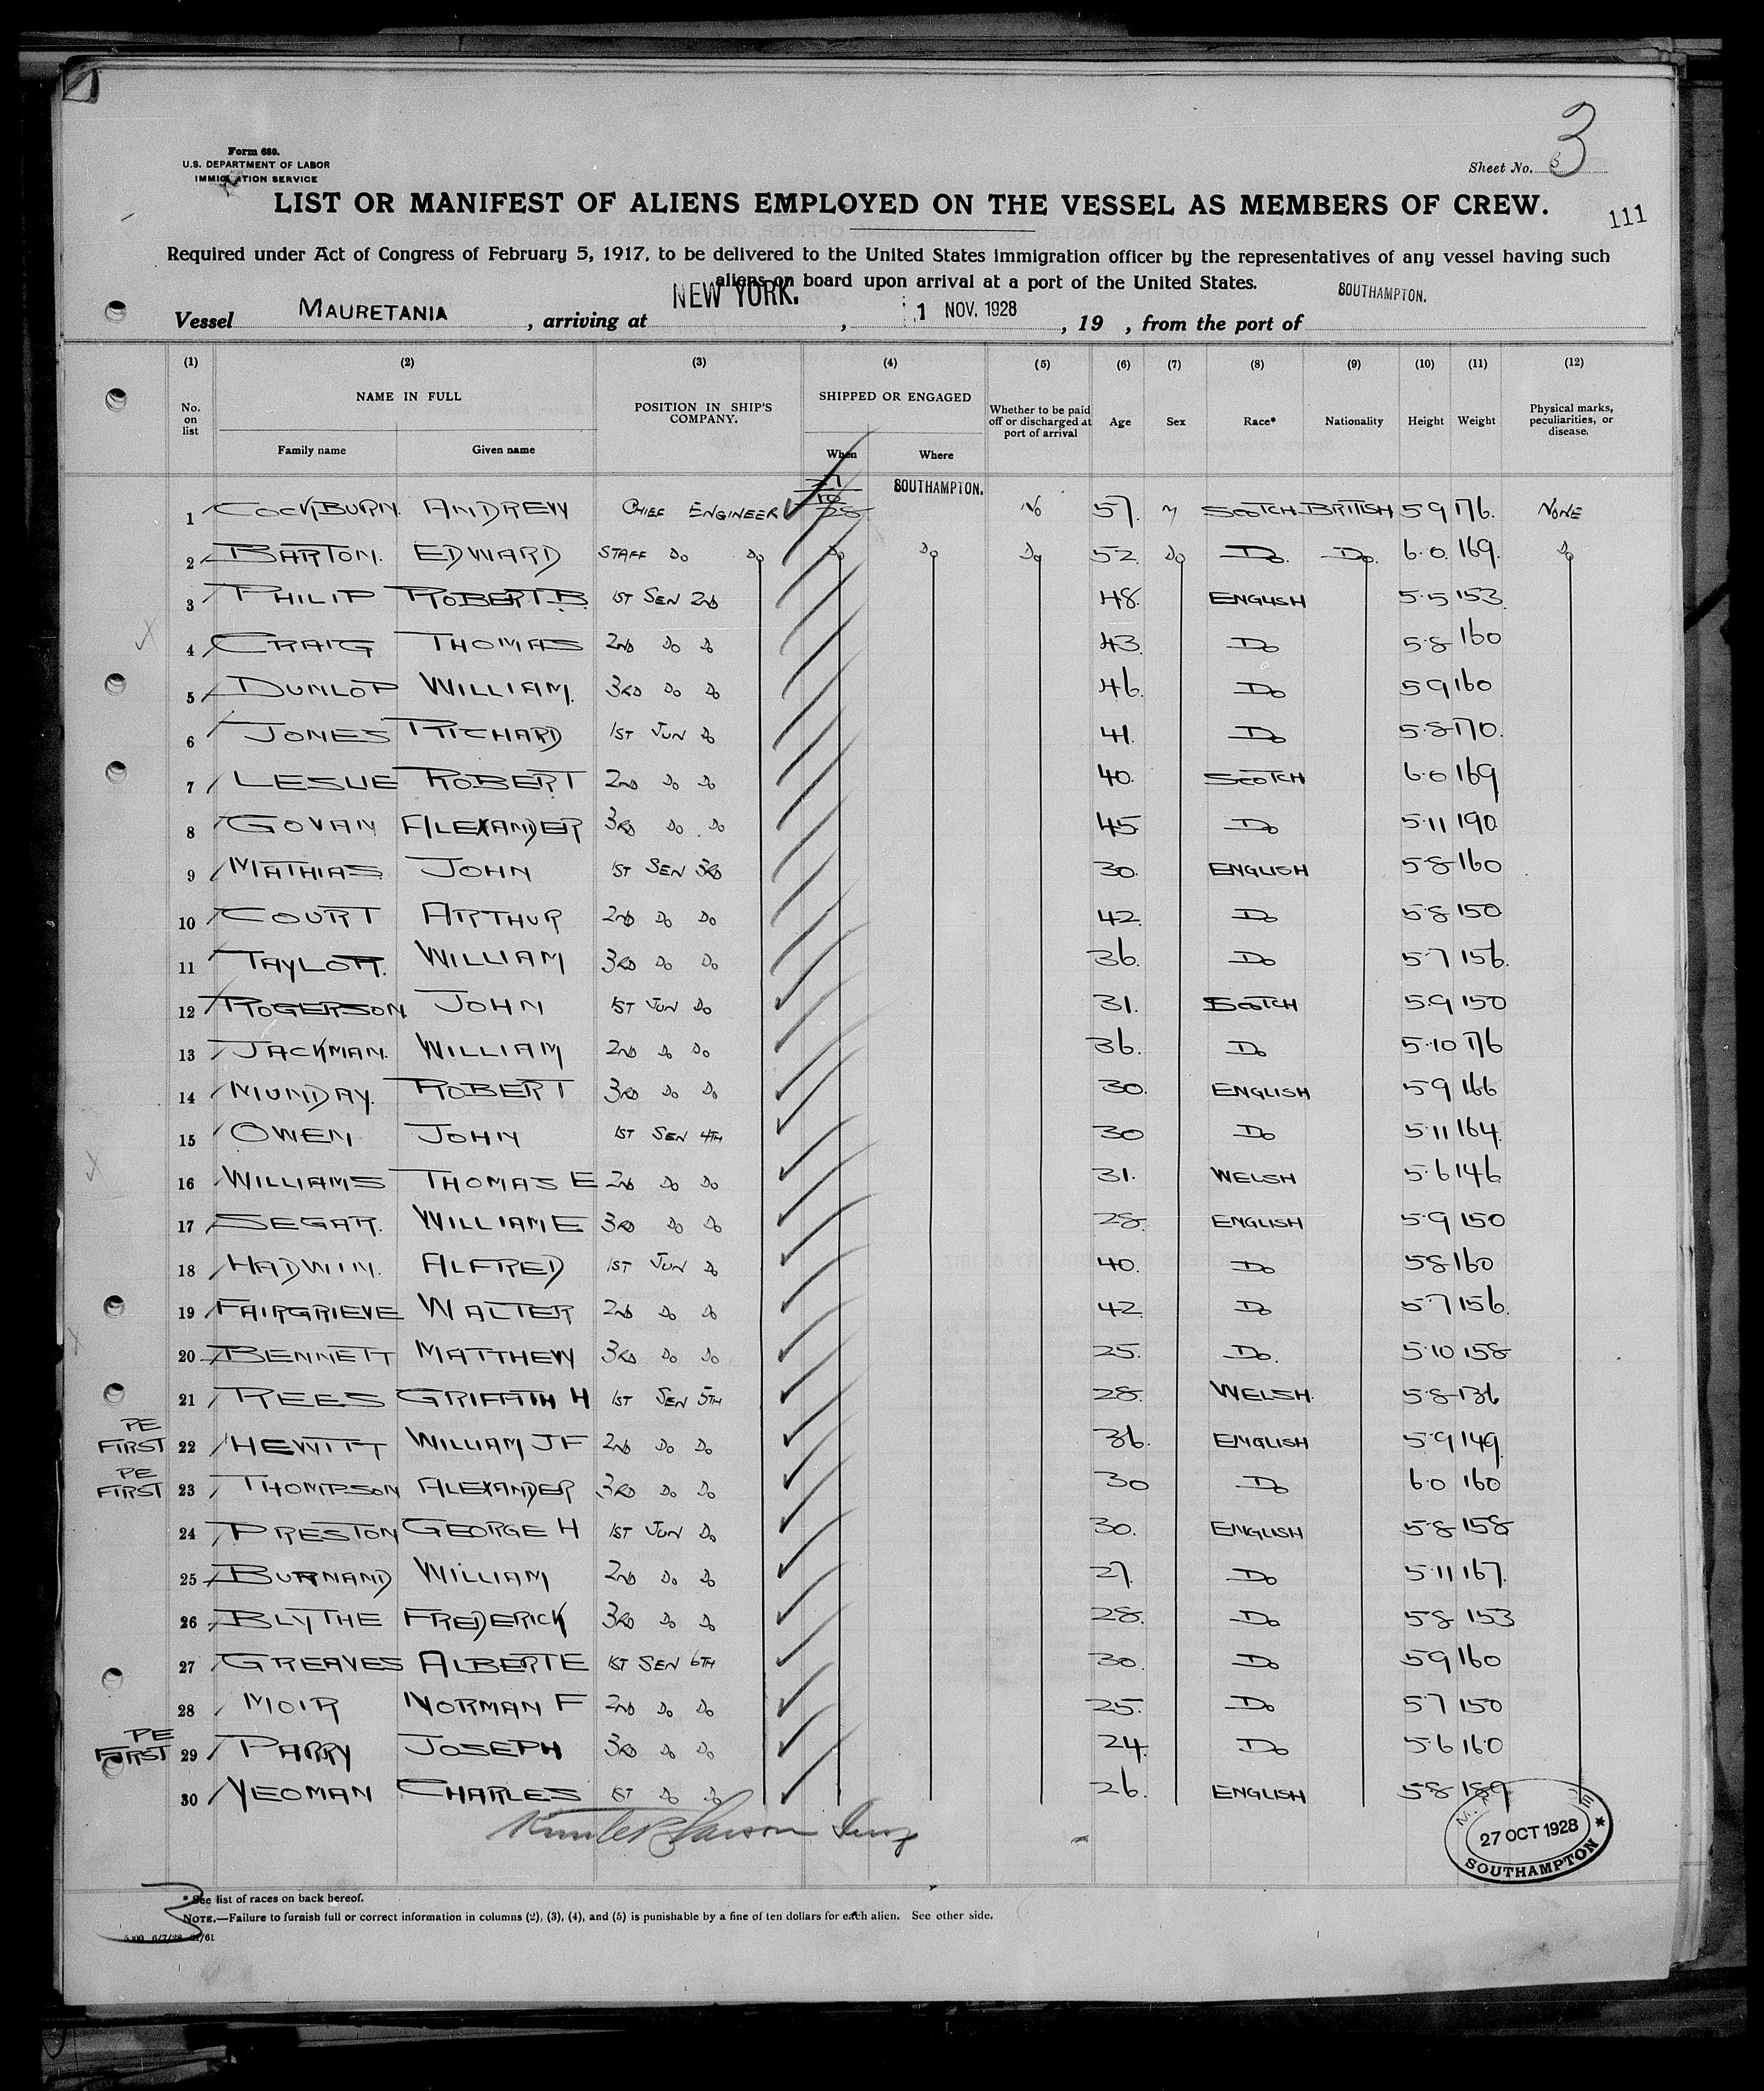 Form 680.
U.S. DEPARTMENT OF LABOR
IMMIGRATION SERVICE
Sheet No. 3
3
LIST OR MANIFEST OF ALIENS EMPLOYED ON THE VESSEL AS MEMBERS OF CREW.
111
Required under Act of Congress of February 5, 1917, to be delivered to the United States immigration officer by the representatives of any vessel having such
aliens on board upon arrival at a port of the United States.
Vessel MAURETANIA, arriving at NEW YORK., 1 NOV. 1928, 19 , from the port of SOUTHAMPTON.
(1) (2) (3) (4) (5) (6) (7) (8) (9) (10) (11) (12)
No. on list NAME IN FULL Family name Given name POSITION IN SHIP'S COMPANY. SHIPPED OR ENGAGED When Where Whether to be paid off or discharged at port of arrival Age Sex Race* Nationality Height Weight Physical marks, peculiarities, or disease.
1 COCKBURN. ANDREW CHIEF ENGINEER 27/10/28 SOUTHAMPTON. No 57. M SCOTCH BRITISH 5 9 176. NONE
2 BARTON. EDWARD STAFF Do Do Do Do Do 52. Do Do. Do. 6.0. 169. Do
3 PHILIP ROBERT.B. 1ST SEN 2ND 48. ENGLISH 5.5 153.
4 CRAIG THOMAS 2ND Do Do 43. Do 5.8 160
5 DUNLOP WILLIAM. 3RD Do Do 46. Do 5 9 160
6 JONES RICHARD 1ST JUN Do 41. Do 5.8 170.
7 LESLIE ROBERT 2ND Do Do 40. SCOTCH 6.0 169
8 GOVAN ALEXANDER 3RD Do Do 45 Do 5.11 190
9 MATHIAS JOHN 1ST SEN 3RD 30. ENGLISH 5.8 160
10 COURT ARTHUR 2ND Do Do 42. Do 5.8 150
11 TAYLOR. WILLIAM 3RD Do Do 36. Do 5.7 156.
12 ROGERSON JOHN 1ST JUN Do 31. SCOTCH 5.9 150
13 JACKMAN. WILLIAM 2ND Do Do 36. Do 5.10 176
14 MUNDAY. ROBERT 3RD Do Do 30. ENGLISH 5 9 166
15 OWEN JOHN 1ST SEN 4TH 30 Do 5.11 164.
16 WILLIAMS THOMAS E 2ND Do Do 31. WELSH 5.6 146
17 SEGAR. WILLIAM E 3RD Do Do 28. ENGLISH 5.9 150
18 HADWIN. ALFRED 1ST JUN Do 40. Do 5 8 160
19 FAIRGRIEVE WALTER 2ND Do Do 42 Do 5.7 156.
20 BENNETT MATTHEW 3RD Do Do 25. Do. 5.10 158
21 REES GRIFFITH H 1ST SEN 5TH 28. WELSH. 5.8 136
PE FIRST 22 HEWITT WILLIAM J F 2ND Do Do 36. ENGLISH 5.9 149
PE FIRST 23 THOMPSON ALEXANDER 3RD Do Do 30 Do 6.0 160
24 PRESTON GEORGE H 1ST JUN Do 30. ENGLISH 5.8 158
25 BURNAND WILLIAM 2ND Do Do 27. Do 5.11 167.
26 BLYTHE FREDERICK 3RD Do Do 28. Do 5 8 153
27 GREAVES ALBERT E 1ST SEN 6TH 30. Do 5 9 160
28 MOIR NORMAN F 2ND Do Do 25. Do 5.7 150
PE FIRST 29 PARRY JOSEPH 3RD Do Do 24. Do 5.6 160
30 YEOMAN CHARLES 1ST Do Do 26. ENGLISH 5.8 189
27 OCT 1928
SOUTHAMPTON
* See list of races on back hereof.
NOTE.—Failure to furnish full or correct information in columns (2), (3), (4), and (5) is punishable by a fine of ten dollars for each alien. See other side.
3